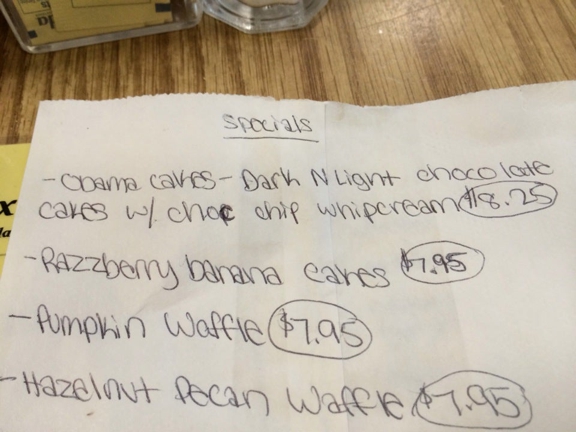 Specials
- Obama cakes - Dark N Light chocolate
cakes w/ choc chip whipcream $8.25
- Razzberry banana cakes $7.95
- Pumpkin Waffle $7.95
- Hazelnut Pecan Waffle $7.95